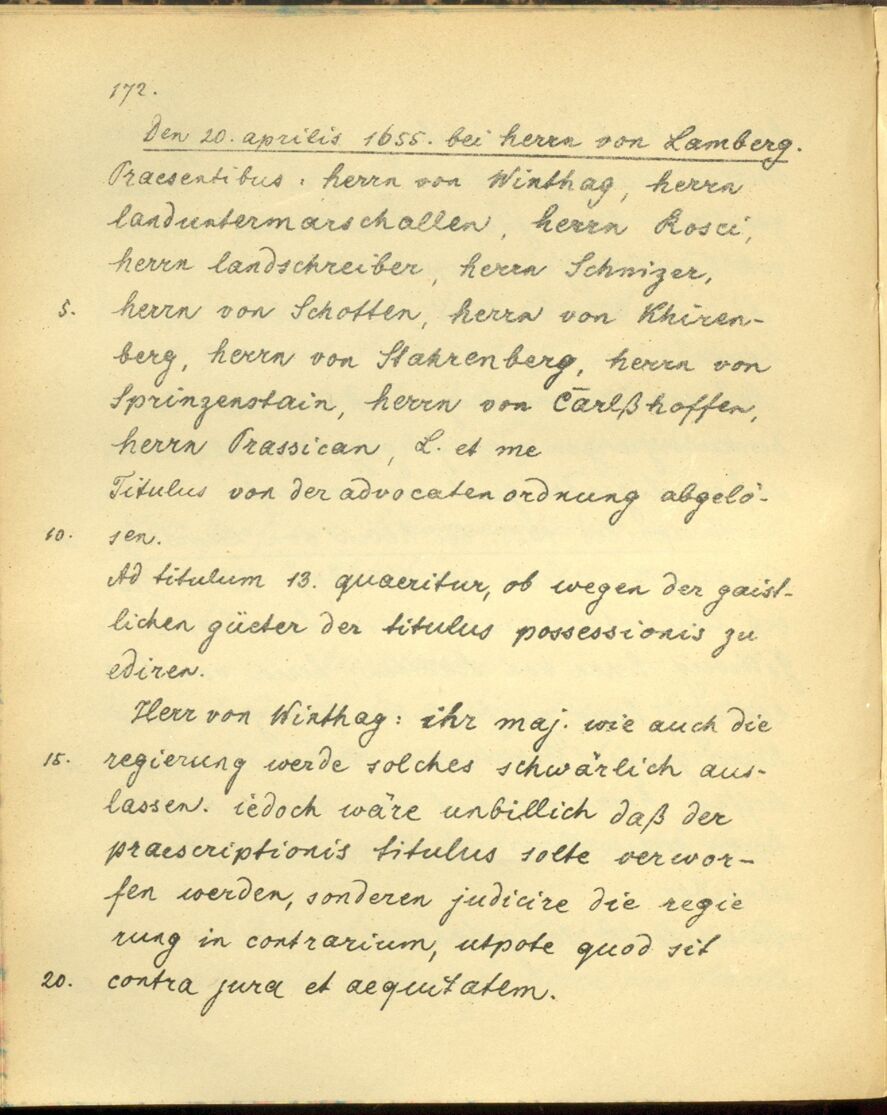 172.
Den 20. aprilis 1655. bei herrn von Lamberg.
Praesentibus: herrn von Winthag, herrn
landuntermarschallen, herrn Rosci,
herrn landschreiber, herrn Schnizer,
5. herrn von Schotten, herrn von Khiren-
berg, herrn von Stahrenberg, herrn von
Sprinzenstain, herrn von Cārlßhoffen,
herrn Prassican, L. et me
Titulus von der advocatenordnung abgelö-
10. sen.
Ad titulum 13. quaeritur, ob wegen der gaist-
lichen güeter der titulus possessionis zu
ediren.
Herr von Winthag: ihr maj. wie auch die
15. regierung werde solches schwärlich aus-
lassen. iedoch wäre unbillich daß der
praescriptionis titulus solte verwor-
fen werden, sonderen judicire die regie
rung in contrarium, utpote quod sit
20. contra jura et aequitatem.